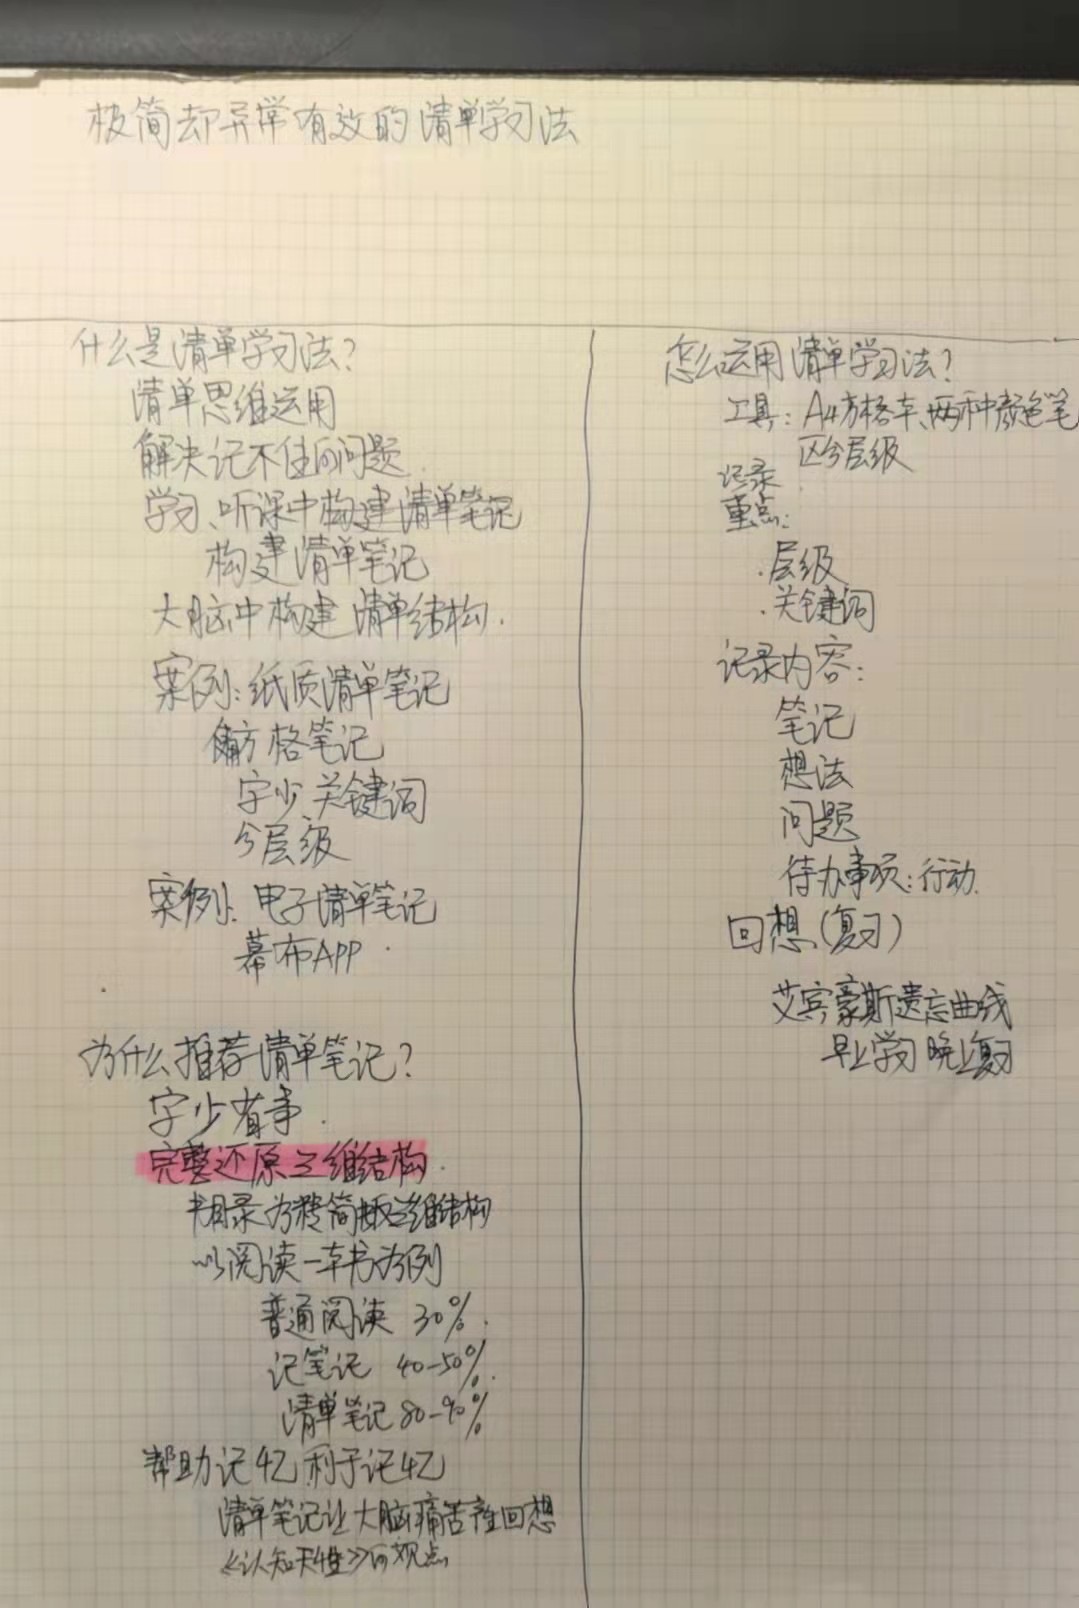 极简却异常有效的清单学习法
什么是清单学习法?
清单思维运用
解决记不住的问题.
学习、听课中构建清单笔记
构建清单笔记
大脑中构建清单结构.
案例:纸质清单笔记
方格笔记
字少、关键词
分层级
案例:电子清单笔记
幕布APP.
为什么推荐清单笔记?
字少省事.
完整还原三维结构.
书目录为精简版三维结构
以阅读一本书为例
普通阅读 30%.
记笔记 40-50%.
清单笔记 80-90%
帮助记忆,利于记忆
清单笔记让大脑痛苦 回想
《认知天性》的观点
怎么运用清单学习法?
工具:A4方格本、两种颜色笔
区分层级
记录
重点:
.层级
.关键词
记录内容:
笔记
想法
问题
待办事项:行动.
回想(复习)
艾宾豪斯遗忘曲线
早上学习 晚上复习